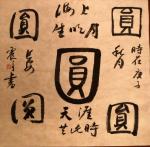 圓
海上生明月
圓
時在庚子
秋月
圓
天涯共此時
圓
圓
書